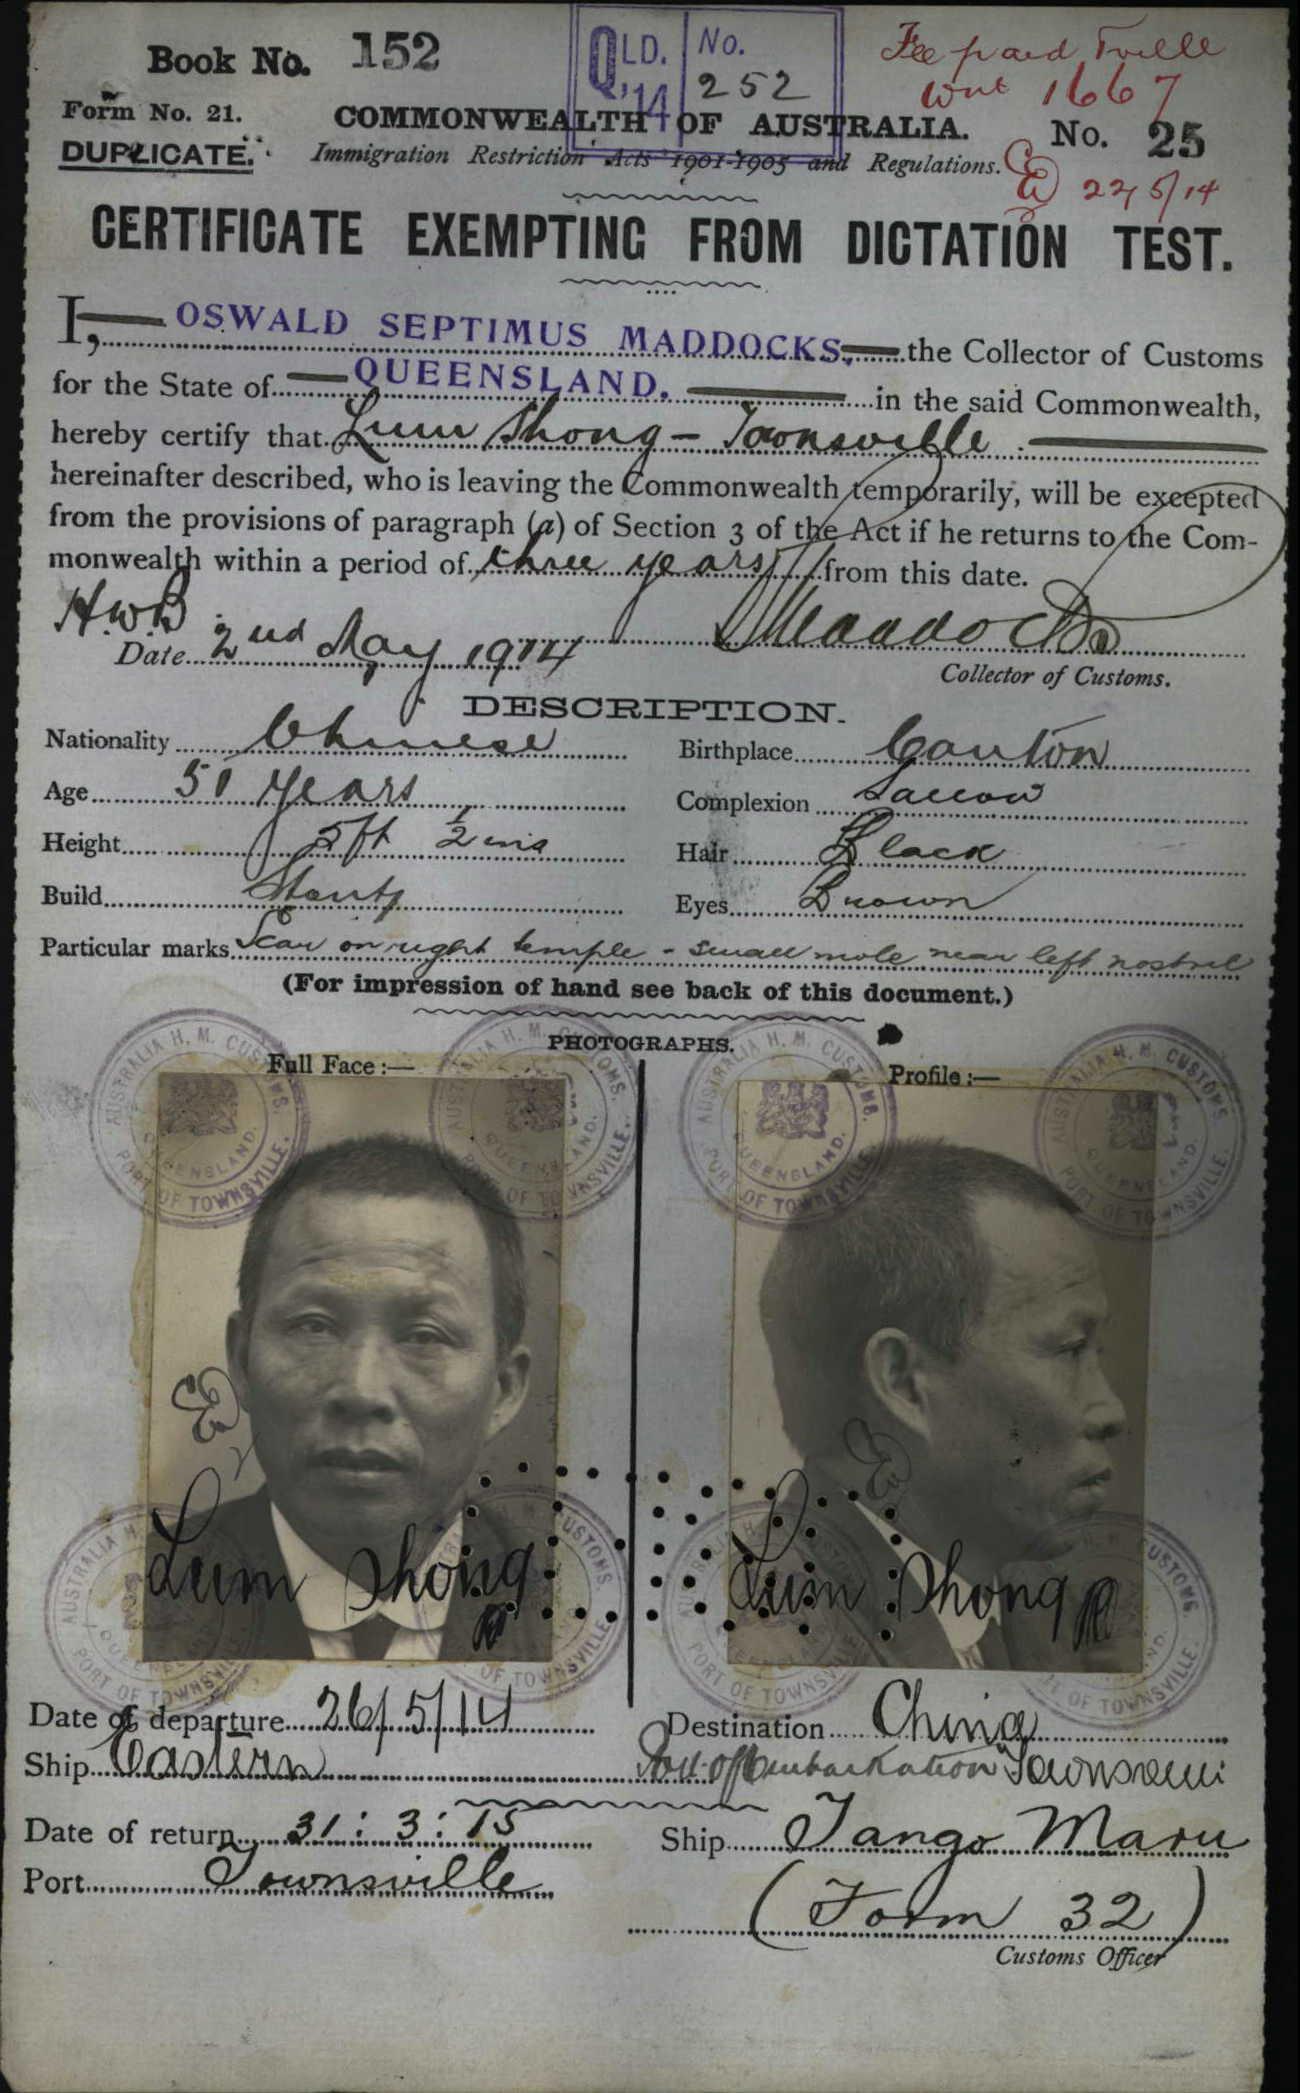 Book No. 152
QLD. '14 No. 252
Fee paid Tville
1667
Form No. 21.
COMMONWEALTH OF AUSTRALIA.
No. 25
DUPLICATE.
Immigration Restriction Acts 1901-1905 and Regulations.
22/5/14
CERTIFICATE EXEMPTING FROM DICTATION TEST.
I, OSWALD SEPTIMUS MADDOCKS, the Collector of Customs
for the State of QUEENSLAND. in the said Commonwealth,
hereby certify that Lum Shong - Townsville
hereinafter described, who is leaving the Commonwealth temporarily, will be excepted
from the provisions of paragraph (a) of Section 3 of the Act if he returns to the Com-
monwealth within a period of three years from this date.
H.W.B.
OSMaddocks
Date 2nd May 1914
Collector of Customs.
DESCRIPTION.
Nationality Chinese
Birthplace Canton
Age 51 years
Complexion Sallow
Height 5ft ½ ins
Hair Black
Build Stout
Eyes Brown
Particular marks Scar on right temple - small mole near left nostril
(For impression of hand see back of this document.)
PHOTOGRAPHS.
Full Face :—
Profile :—
AUSTRALIA H. M. CUSTOMS. QUEENSLAND. PORT OF TOWNSVILLE.
AUSTRALIA H. M. CUSTOMS. QUEENSLAND. PORT OF TOWNSVILLE.
AUSTRALIA H. M. CUSTOMS. QUEENSLAND. PORT OF TOWNSVILLE.
AUSTRALIA H. M. CUSTOMS. QUEENSLAND. PORT OF TOWNSVILLE.
Lum Shong
Lum Shong
AUSTRALIA H. M. CUSTOMS. QUEENSLAND. PORT OF TOWNSVILLE.
AUSTRALIA H. M. CUSTOMS. QUEENSLAND. PORT OF TOWNSVILLE.
Date of departure 26/5/14
Destination China
Ship Eastern
Port of Embarkation Townsville
Date of return 31:3:15
Ship Tango Maru
Port Townsville
(Form 32)
Customs Officer